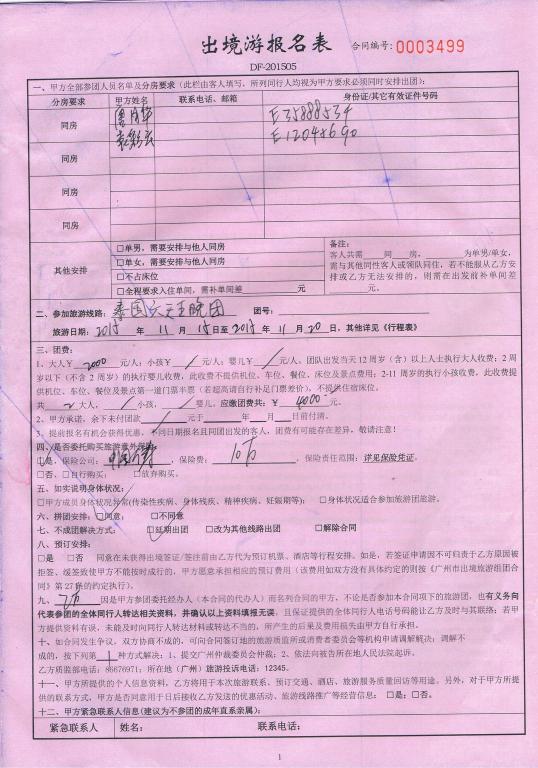 出境游报名表 合同编号: 0003499
DF-201505
一、甲方全部参团人员名单及分房要求（此栏由客人填写，所列同行人均视为甲方要求必须同时安排出团）：
分房要求 甲方姓名 联系电话、邮箱 身份证/其它有效证件号码
同房 E35888534
E12048690
同房
同房
同房
其他安排
□单男，需要安排与他人同房
□单女，需要安排与他人同房
□不占床位
□全程要求入住单间，需补单间差 元
备注：
客人共需 间 房， 为单男/单女，
需与其他同性客人或领队同住，若不能服从乙方安
排或乙方无法安排的，则需在出发前补单间差
元。
二、参加旅游线路：泰国六天五晚团 团号：
旅游日期：2015 年 11 月 15 日至 2015 年 11 月 20 日，其他详见《行程表》
三、团费：
1、大人￥2000 元/人；小孩￥ / 元/人；婴儿￥ / 元/人，团队出发当天 12 周岁（含）以上人士执行大人收费；2 周
岁以下（不含 2 周岁）的执行婴儿收费，此收费不提供机位、车位、餐饮、床位及景点费用；2-11 周岁的执行小孩收费，此收费提
供机位、车位、餐饮及景点第一道门票半票（若超高请自行补足门票差价），不提供住宿床位。
共 2 大人， / 小孩， / 婴儿，应缴团费共：￥ 4000 元。
2、甲方承诺，余下未付团款 元于 年 月 日前付清。
3、提前报名有机会获得优惠，不同日期报名且同团出发的客人，团费有可能存在差异，敬请注意！
四、是否委托购买旅游意外保险：
□是，保险公司： ，保险费： 10万 ，保险责任范围：详见保险凭证。
□否，□自行购买； □放弃购买。
五、如实说明身体状况：
□甲方成员身体状况异常(传染性疾病、身体残疾、精神疾病、妊娠期等)； □身体状况适合参加旅游团旅游。
六、拼团安排：□同意； □不同意
七、不成团解决方式： □延期出团 □改为其他线路出团 □解除合同
八、预订安排：
□是 □否 同意在未获得出境签证/签注前由乙方代为预订机票、酒店等行程安排。如是，若签证申请因不可归责于乙方原因被
拒签、缓签致使甲方不能按时成行的，甲方愿意承担相应的预订费用（该费用如双方没有具体约定的则按《广州市出境旅游组团合
同》第 27 条的约定执行）。
九、 因是甲方参团委托经办人（本合同的代办人）而名列合同的甲方，不论是否参加本合同项下的旅游团，也有义务向
代表参团的全体同行人转达相关资料，并确认以上资料填报无误，且保证提供的全体同行人电话号码能让乙方及时与其联络；若甲
方提供资料有误、未能及时向同行人转达材料或转达不当的，所产生的后果及费用损失由甲方自行承担。
十、如合同发生争议，双方协商不成的，可向合同签订地的旅游质监所或消费者委员会等机构申请调解解决；调解不
成的，按下列第 1 种方式解决：1、提交广州仲裁委员会仲裁；2、依法向被告所在地人民法院起诉。
乙方质监部电话：86676971；所在地（广州）旅游投诉电话：12345。
十一、甲方所提供的个人信息资料，乙方将用于本次旅游联系、预订交通、酒店、旅游服务质量回访等用途。另外，对于甲方所提
供的联系方式，甲方是否同意用于日后接收乙方发送的优惠活动、旅游线路推广等经营信息： □是；□否。
十二、甲方紧急联系人信息(建议为不参团的成年直系亲属)：
紧急联系人 姓名： 联系电话：
1